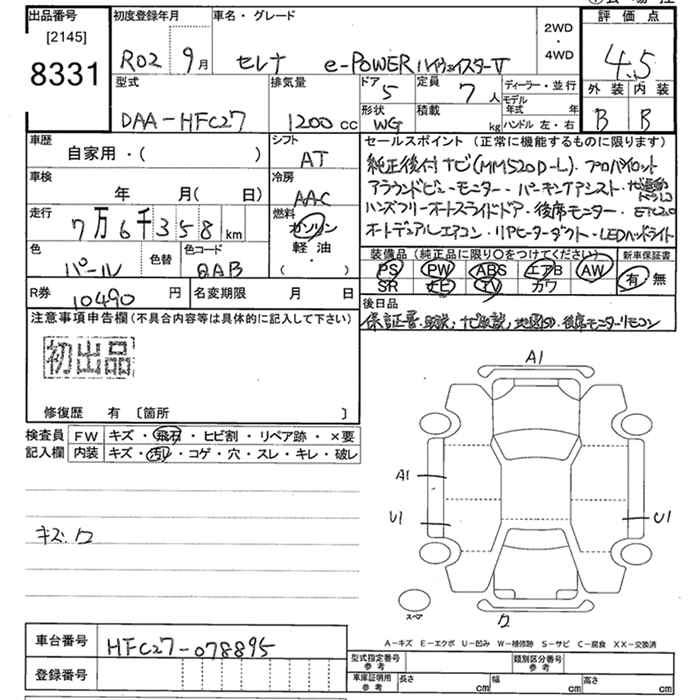 出品番号
[2145]
8331
初度登録年月
R02 9月
車名・グレード
セレナ e-POWER ハイウェイスターV
2WD
・
4WD
評価点
4.5
外装 内装
B B
型式
DAA-HFC27
排気量
1200cc
ドア
5
形状
WG
定員
7人
積載
kg
ディーラー・並行
モデル年式 年
ハンドル 左・右
車歴
自家用・( )
シフト
AT
車検
年 月( 日)
冷房
AAC
走行
7万6千358km
燃料
ガソリン
軽油
( ・ )
色
パール
色替
色コード
QAB
R券
10490円
名変期限 月 日
セールスポイント(正常に機能するものに限ります)
純正後付ナビ(MM520D-L)・プロパイロット
アラウンドビューモニター・パーキングアシスト・
ハンズフリーオートスライドドア・後席モニター・ETC2.0
オートデュアルエアコン・リヤヒーターダクト・LEDヘッドライト
装備品(純正品に限り○をつけてください)
PS PW ABS エアB AW
SR ナビ TV カワ
新車保証書
有 無
後日品
保証書・取説・ナビ取説・地図SD・後席モニターリモコン
注意事項申告欄(不具合内容等は具体的に記入して下さい)
初出品
修復歴 有 〔箇所 〕
検査員
記入欄
FW キズ・飛石・ヒビ割・リペア跡・×要
内装 キズ・汚レ・コゲ・穴・スレ・キレ・破レ
キズ.ワ
A1
A1
U1
U1
ワ
スペア
A-キズ E-エクボ U-凹み W-補修跡 S-サビ C-腐食 XX-交換済
車台番号
HFC27-078895
登録番号
型式指定番号
参考
類別区分番号
参考
車庫証明用
参考
長さ cm 幅 cm 高さ cm